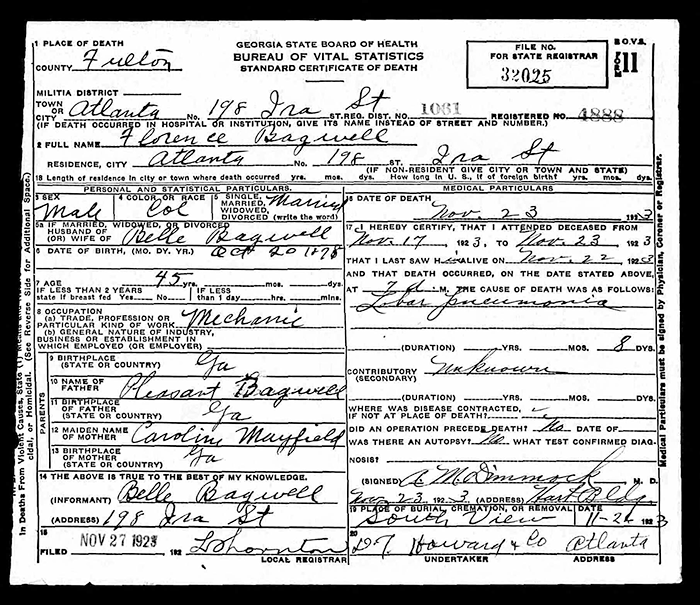 1 PLACE OF DEATH
COUNTY Fulton
GEORGIA STATE BOARD OF HEALTH
BUREAU OF VITAL STATISTICS
STANDARD CERTIFICATE OF DEATH
FILE NO.
FOR STATE REGISTRAR
32025
B.O.V.S.
FORM 11
MILITIA DISTRICT
TOWN OR CITY Atlanta No. 198 Ira St ST. REG. DIST. NO. 1061 REGISTERED NO. 4888
(IF DEATH OCCURRED IN HOSPITAL OR INSTITUTION, GIVE ITS NAME INSTEAD OF STREET AND NUMBER.)
2 FULL NAME Florence Bagwell
RESIDENCE, CITY Atlanta No. 198 ST. Ira St
(IF NON-RESIDENT GIVE CITY OR TOWN AND STATE)
18 Length of residence in city or town where death occurred yrs. mos. dys. How long in U. S., if of foreign birth? yrs. mos. dys.
PERSONAL AND STATISTICAL PARTICULARS.
3 SEX Male
4 COLOR OR RACE Col
5 SINGLE, MARRIED, WIDOWED, DIVORCED (write the word) Married
5a IF MARRIED, WIDOWED, OR DIVORCED
HUSBAND OF (OR) WIFE OF Belle Bagwell
6 DATE OF BIRTH (MO. DY. YR.) Oct 20 1878
7 AGE 45 yrs. mos. dys.
IF LESS THAN 2 YEARS state if breast fed Yes No
IF LESS than 1 day hrs. min.
8 OCCUPATION
(a) TRADE, PROFESSION OR PARTICULAR KIND OF WORK Mechanic
(b) GENERAL NATURE OF INDUSTRY, BUSINESS OR ESTABLISHMENT IN WHICH EMPLOYED (OR EMPLOYER)
PARENTS
9 BIRTHPLACE (STATE OR COUNTRY) Ga
10 NAME OF FATHER Pleasant Bagwell
11 BIRTHPLACE OF FATHER (STATE OR COUNTRY) Ga
12 MAIDEN NAME OF MOTHER Caroline Mayfield
13 BIRTHPLACE OF MOTHER (STATE OR COUNTRY) Ga
14 THE ABOVE IS TRUE TO THE BEST OF MY KNOWLEDGE.
(INFORMANT) Belle Bagwell
(ADDRESS) 198 Ira St
15
FILED NOV 27 1923 192 L Thornton
LOCAL REGISTRAR
MEDICAL PARTICULARS
16 DATE OF DEATH
Nov. 23 1923
17 I HEREBY CERTIFY, THAT I ATTENDED DECEASED FROM
Nov. 17 1923, TO Nov. 23 1923
THAT I LAST SAW H ALIVE ON Nov. 22 1923
AND THAT DEATH OCCURRED, ON THE DATE STATED ABOVE,
AT 7 M. THE CAUSE OF DEATH WAS AS FOLLOWS:
Lobar pneumonia
(DURATION) YRS. MOS. 8 DYS.
CONTRIBUTORY (SECONDARY) Unknown
(DURATION) YRS. MOS. DYS.
WHERE WAS DISEASE CONTRACTED,
IF NOT AT PLACE OF DEATH?
DID AN OPERATION PRECEDE DEATH? No DATE OF
WAS THERE AN AUTOPSY? No WHAT TEST CONFIRMED DIAG-
NOSIS?
(SIGNED) A. M. Dimmock M. D.
Nov. 23 1923 (ADDRESS) Hart Bldg
19 PLACE OF BURIAL, CREMATION, OR REMOVAL DATE
South View 11-26 1923
20
D. T. Howard & Co Atlanta
UNDERTAKER ADDRESS
In Deaths From Violent Causes, State (1)
cidal, or Homicidal. (See Reverse Side for Additional Space.)
Medical Particulars must be signed by Physician, Coroner or Registrar.